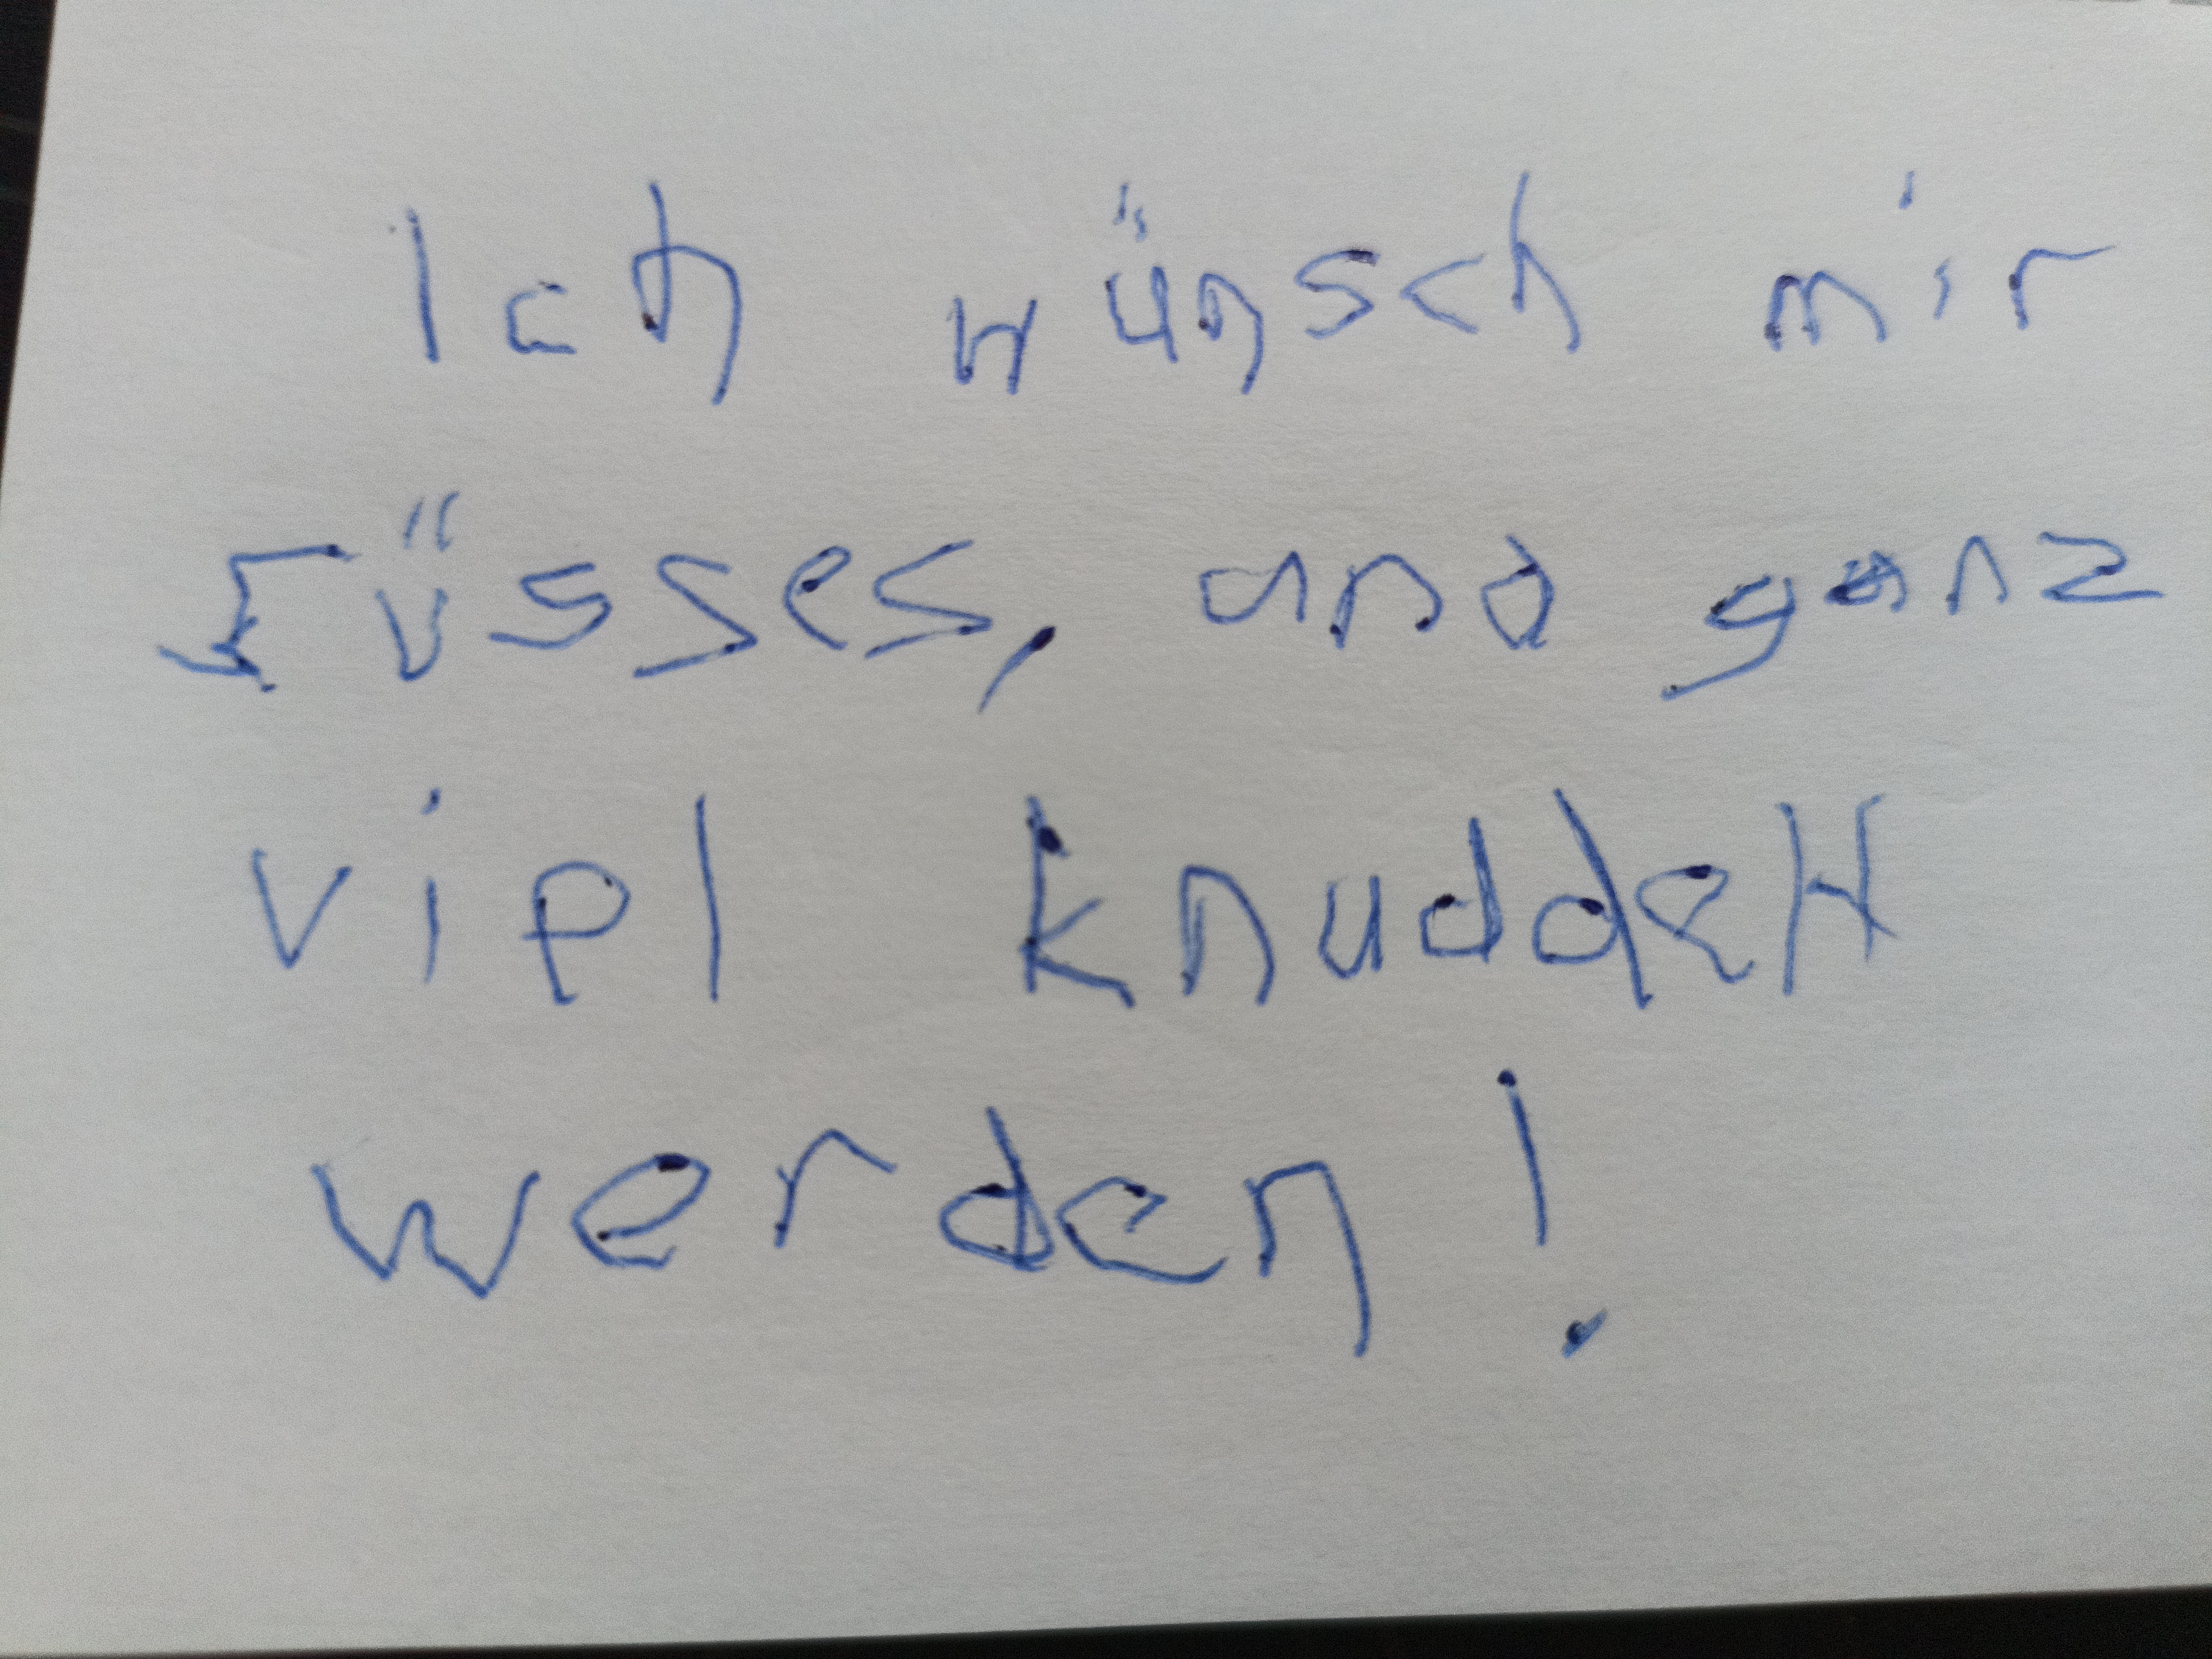 Ich wünsch mir
Süsses, und ganz
viel knuddelt
werden!